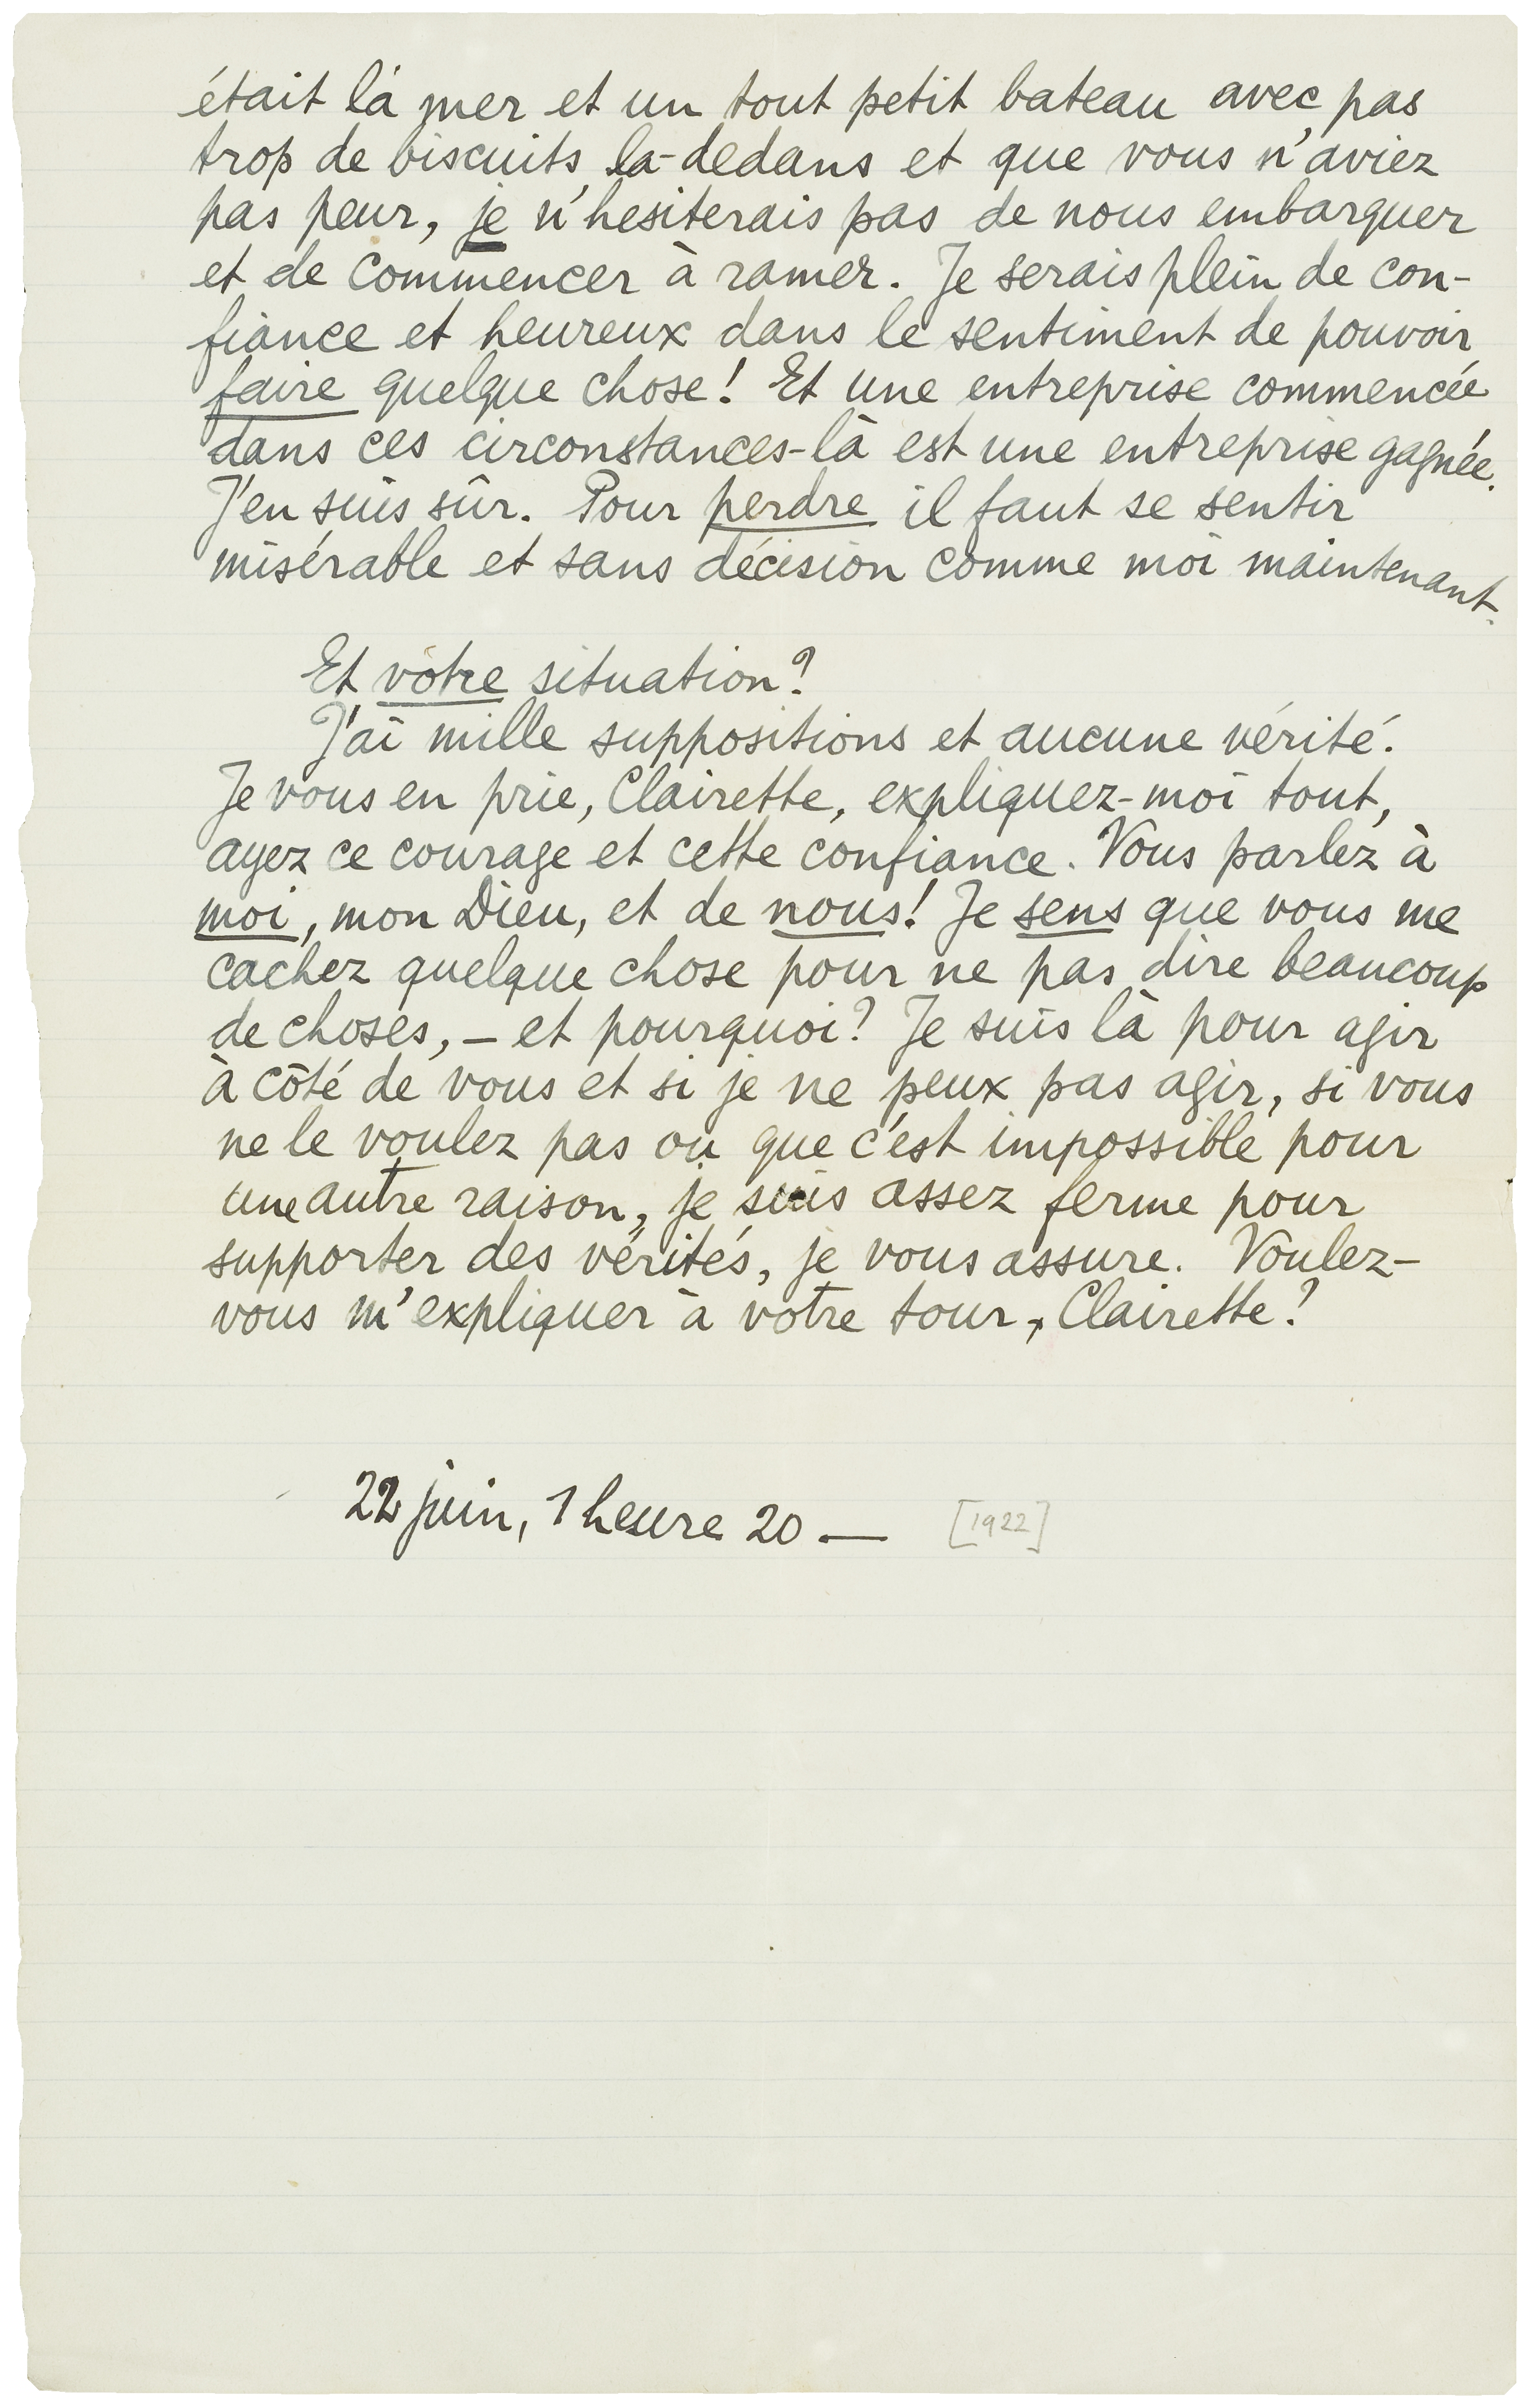 était là mer et un tout petit bateau avec pas
trop de biscuits là-dedans et que vous n'aviez
pas peur, je n'hesiterais pas de nous embarquer
et de commencer à ramer. Je serais plein de con-
fiance et heureux dans le sentiment de pouvoir
faire quelque chose! Et une entreprise commencée
dans ces circonstances-là est une entreprise gagnée.
J'en suis sûr. Pour perdre il faut se sentir
misérable et sans décision comme moi maintenant.
Et vôtre situation?
J'ai mille suppositions et aucune vérité.
Je vous en prie, Clairette, expliquez-moi tout,
ayez ce courage et cette confiance. Vous parlez à
moi, mon Dieu, et de nous! Je sens que vous me
cachez quelque chose pour ne pas dire beaucoup
de choses, – et pourquoi? Je suis là pour agir
à côté de vous et si je ne peux pas agir, si vous
ne le voulez pas ou que c'est impossible pour
une autre raison, je suis assez ferme pour
supporter des vérités, je vous assure. Voulez-
vous m'expliquer à votre tour, Clairette?
22 juin, 1 heure 20 — [1922]